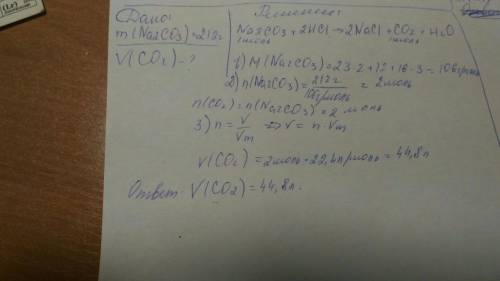 Дано:
m(Na2CO3)=212г
V(CO2)-?
Решение:
Na2CO3+2HCl→2NaCl+CO2+H2O
1моль 1моль
1) M(Na2CO3)=23·2+12+16·3=106г/моль
2) n(Na2CO3)=212г/106г/моль=2моль
n(CO2)=n(Na2CO3)=2 моль
3) n=V/Vm ⇒V= n·Vm
V(CO2)=2моль·22,4л/моль=44,8л
Ответ: V(CO2)=44,8л.